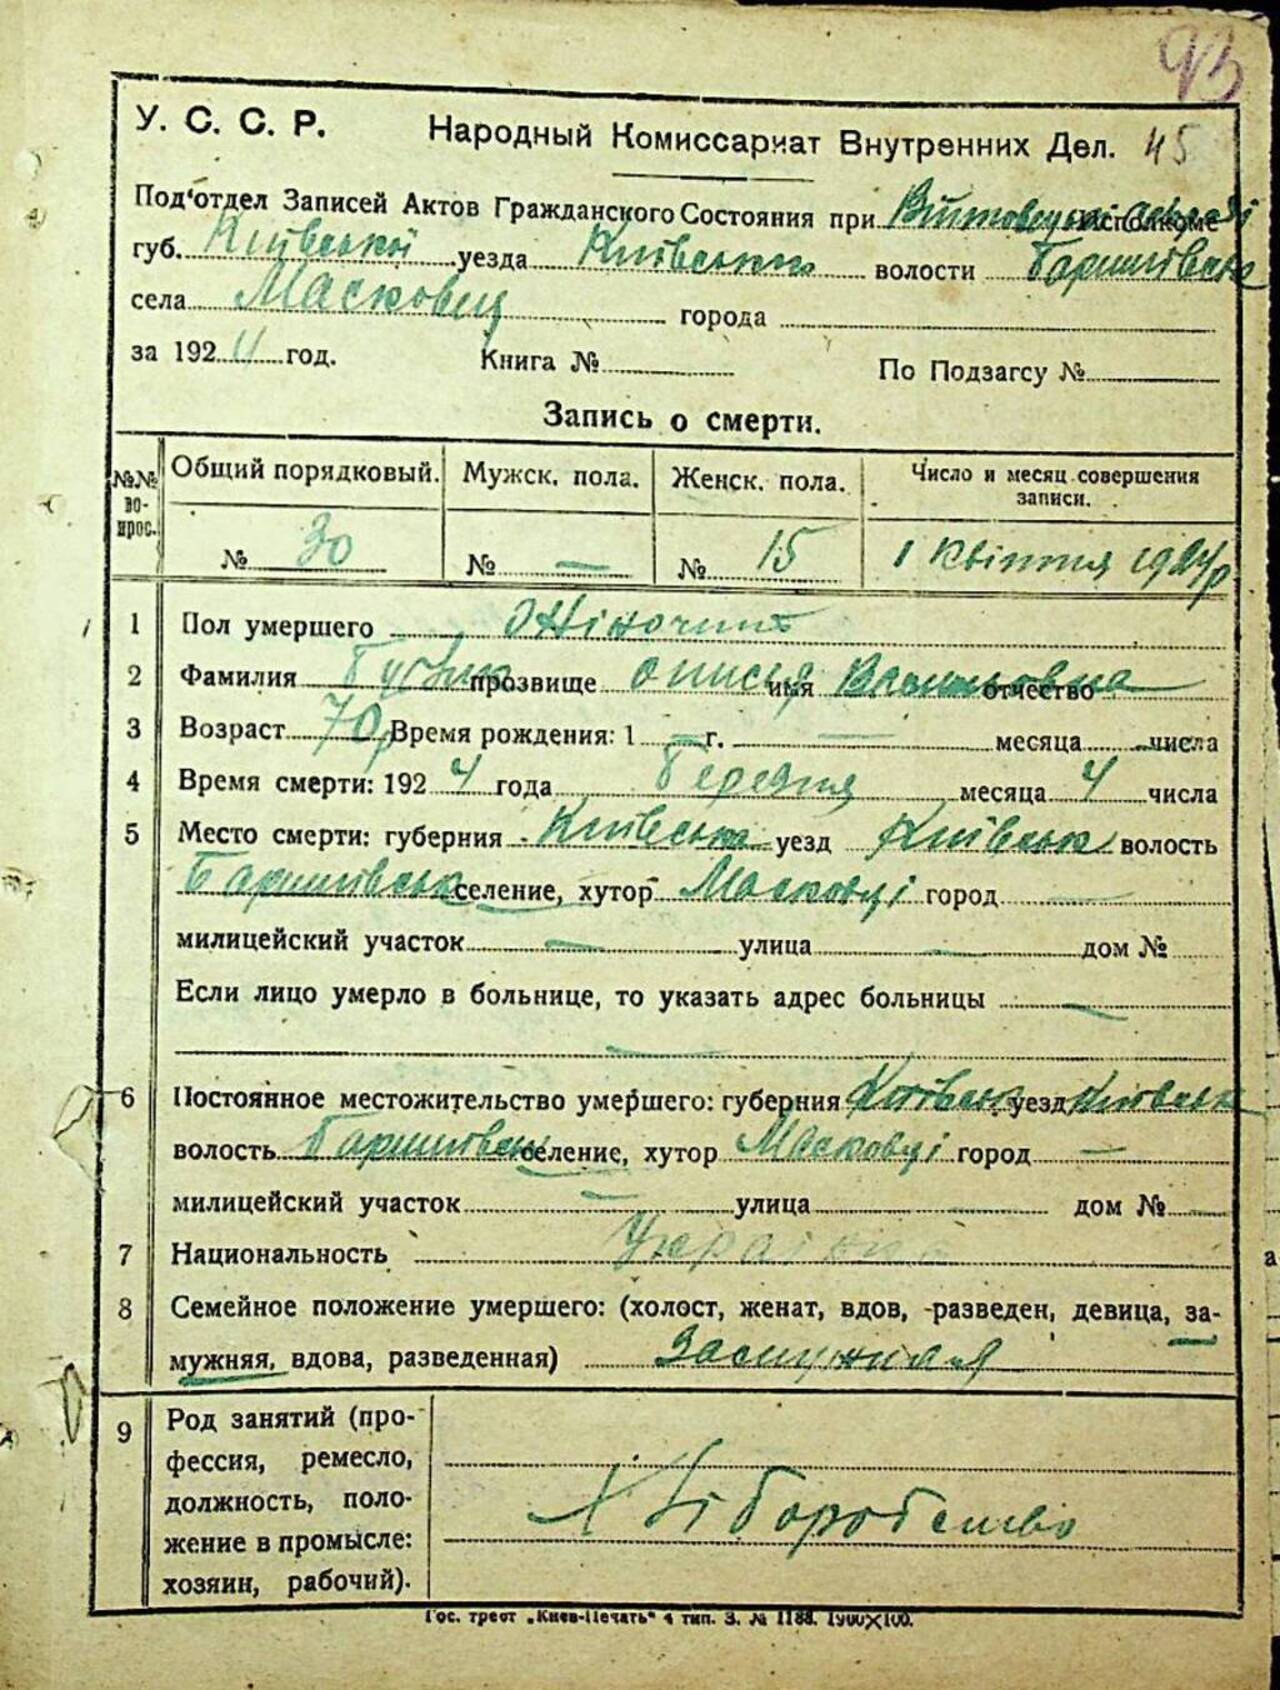 93
У. С. С. Р. Народный Комиссариат Внутренних Дел. 45
Под'отдел Записей Актов Гражданского Состояния при Исполкоме
губ. Київській уезда Київським волости Баришівськ
села Масковці города
за 1924 год. Книга № По Подзагсу №
Запись о смерти.
№№ вопрос. Общий порядковый. Мужск. пола. Женск. пола. Число и месяц совершения записи.
№ 30 № — № 15 1 квітня 1924 р
1 Пол умершего Жіночий
2 Фамилия прозвище Описья имя отчество
3 Возраст 70 р Время рождения: 1 — г. — месяца числа
4 Время смерти: 1924 года Березня месяца 4 числа
5 Место смерти: губерния Київська уезд Київськ волость
Баришівськ селение, хутор Масковці город —
милицейский участок — улица — дом №
Если лицо умерло в больнице, то указать адрес больницы —
—
6 Постоянное местожительство умершего: губерния Київськ уезд Київськ
волость Баришівськ селение, хутор Масковці город —
милицейский участок — улица дом №
7 Национальность Українка
8 Семейное положение умершего: (холост, женат, вдов, разведен, девица, за-
мужняя, вдова, разведенная) Замужняя
9 Род занятий (про-
фессия, ремесло,
должность, поло-
жение в промысле:
хозяин, рабочий).
Хліборобство
Гос. трест „Киев-Печать" 4 тип. З. № 1188. 1900×100.